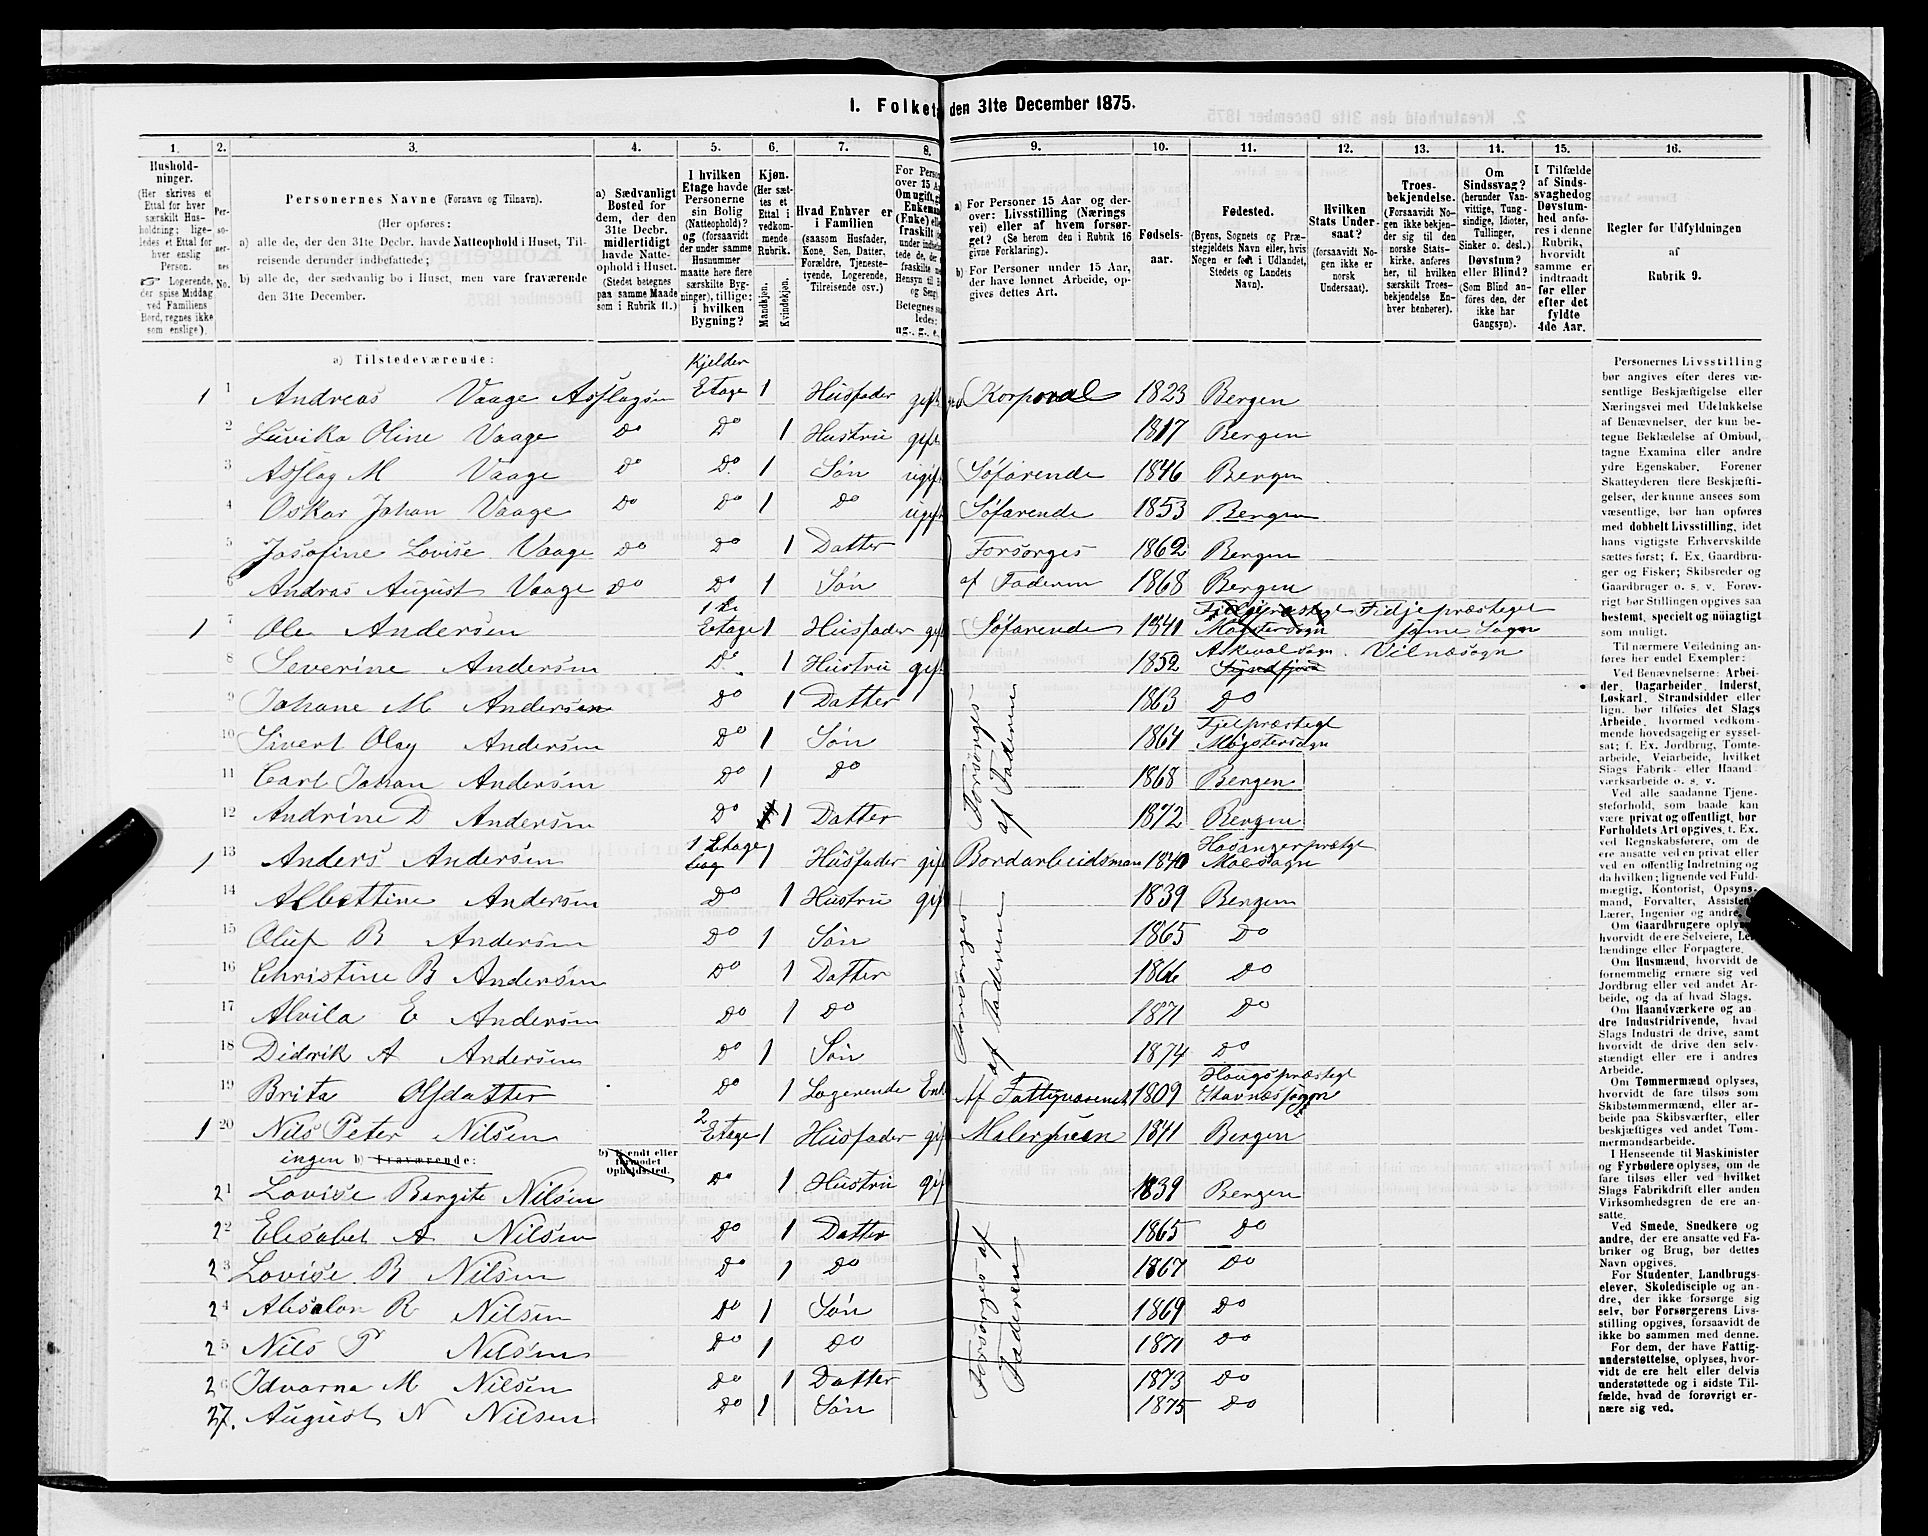 1. Folket den 31te December 1875.
1. 2. 3. 4. 5. 6. 7. 8. 9. 10. 11. 12. 13. 14. 15. 16.
Hushold-
ninger.
(Her skrives et
Ettal for hver
særskilt Hus-
holdning; lige-
ledes et Ettal for
hver enslig
Person.
☞ Logerende,
der spise Middag
ved Familiens
Bord, regnes ikke
som enslige).
Per-
so-
ner-
nes
No.
Personernes Navne (Fornavn og Tilnavn).
(Her opføres:
a) alle de, der den 31te Decbr. havde Natteophold i Huset, Til-
reisende derunder indbefattede;
b) alle de, der sædvanlig bo i Huset, men vare fraværende
den 31te December.
a) Sædvanligt
Bosted for
dem, der den
31te Decbr.
midlertidigt
havde Natte-
ophold i Huset.
(Stedet betegnes
paa samme Maade
som i Rubrik 11.)
I hvilken
Etage havde
Personerne
sin Bolig
(Natteophold)?
og (forsaavidt
der under samme
Husnummer
maatte høre flere
særskilte Byg-
ninger), tillige:
i hvilken
Bygning?
Kjøn.
(Her sæt-
tes et
Ettal i
vedkom-
mende
Rubrik.
Mandkjøn.
Kvindekjøn.
Hvad Enhver er
i Familien
(saasom Husfader,
Kone, Søn, Datter,
Forældre, Tjeneste-
tyende, Logerende,
Tilreisende osv.)
For Perso
over 15 A
Om ugift, g
Enkema
(Enke) el
fraskilt
ug., g., e.
a) For Personer 15 Aar og der-
over: Livsstilling (Nærings
vei) eller af hvem forsør-
get? (Se herom den i Rubrik 16
givne Forklaring).
b) For Personer under 15 Aar,
der have lønnet Arbeide, op-
gives dettes Art.
Fødsels-
aar.
Fødested.
(Byens, Sognets og Præ-
stegjeldets Navn eller, hvis
Nogen er født i Udlandet,
Stedets og Landets
Navn).
Hvilken
Stats Under-
saat?
(forsaavidt No-
gen ikke er
norsk
Undersaat).
Troes-
bekjendelse.
(Forsaavidt No-
gen ikke bekjen-
der sig til den
norske Stats-
kirke, anføres
her, til hvilken
særskilt Troes-
bekjendelse En-
hver henhører).
Om
Sindssvag?
(herunder Van-
vittige, Tung-
sindige, Idioter,
Tullinger,
Sinker o. desl.)
Døvstum?
eller Blind?
(Som Blind an-
føres den, der
ikke har
Gangsyn).
I Tilfælde
af Sinds-
svaghed og
Døvstum-
hed anfø-
res i denne
Rubrik,
hvorvidt
samme er
indtraadt
før eller
efter det
fyldte
4de Aar.
Regler for Udfyldningen
af
Rubrik 9.
a) Tilstedeværende:
Kjelder
1 1 Andreas Vaage Asslagsøn Etage 1 Husfader gift Korporal 1823 Bergen
2 Luvika Oline Vaage Do Do 1 Hustru gift 1817 Bergen
3 Asslag M Vaage Do Do 1 Søn ugift Søfarende 1846 Bergen
4 Oskar Johan Vaage Do Do 1 Do ugift Søfarende 1853 Bergen
5 Josofine Lovise Vaage Do Do 1 Datter Forsørges 1862 Bergen
6 Andras August Vaage Do Do 1 Søn af Faderen 1868 Bergen
1 7 Ole Andersen 1ste Etage 1 Husfader gift Søfarende 1841 Møgstersogn Fidje præsteget
8 Severine Andersen Do 1 Hustru gift 1852 Askevold sogn Vilnæsogn
9 Johane M Andersen Do 1 Datter Forsørges af Faderen 1863 Do
10 Sivert Olay Andersen Do 1 Søn 1864 Fjelpræstegt Møgstersogn
11 Carl Johan Andersen Do 1 Do 1868 Bergen
12 Andrine D Andersen Do 1 Datter 1872 Bergen
1 13 Anders Andersen 1 Etage 1 Husfader gift Bordarbeidsman 1840 Hosangerpræstgt Moesogn
14 Albertine Andersen Do 1 Hustru gift 1839 Bergen
15 Oluf B Andersen Do 1 Søn Forsørges af Faderen 1865 Do
16 Christine B Andersen Do 1 Datter 1866 Do
17 Alvila E Andersen Do 1 Do 1871 Do
18 Didrik A Andersen Do 1 Søn 1874 Do
19 Brita Olsdatter Do 1 Logerende Enk Af Fattigvæsenet 1809 Hougspræstegt Stavnæssogn
1 20 Nils Peter Nilsen 2 Etage 1 Husfader gift Malersven 1841 Bergen
ingen b) Fraværende: b) Kjendt eller formodet Opholdssted.
21 Lovise Bergite Nilsen Do 1 Hustru gift 1839 Bergen
22 Elisabet A Nilsen Do 1 Datter Forsørges af Faderen 1865 Do
23 Lovise B Nilsen Do 1 Do 1867 Do
24 Absalon R Nilsen Do 1 Søn 1869 Do
25 Nils P Nilsen Do 1 Do 1871 Do
26 Idvarna M Nilsen Do 1 Datter 1873 Do
27. August N Nilsen Do 1 Søn 1875 Do
Personernes Livsstilling
bør angives efter deres væ-
sentlige Beskjæftigelse eller
Næringsvei med Udelukkelse
af Benævnelser, der kun be-
tegne Beklædelse af Ombud,
tagne Examina eller andre
ydre Egenskaber. Forener
Skatteyderen flere Beskjæfti-
gelser, der kunne ansees som
væsentlige, bør han opføres
med dobbelt Livsstilling, idet
hans vigtigste Erhvervskilde
sættes først; f. Ex. Gaardbru-
ger og Fisker; Skibsreder og
Gaardbruger o. s. v. Forøv-
rigt bør Stillingen opgives saa
bestemt, specielt og nøiagtigt
som muligt.
Til nærmere Veiledning an-
føres her endel Exempler:
Ved Benævnelserne: Arbei-
der, Dagarbeider, Inderst,
Løskarl, Strandsidder eller
lign. bør tilføies det Slags
Arbeide, hvormed vedkom-
mende hovedsagelig er syssel-
sat; f. Ex. Jordbrug, Tomte-
arbeide, Veiarbeide, hvilket
Slags Fabrik- eller Haand-
værksarbeide o. s. v.
Ved alle saadanne Tjene-
steforhold, som baade kan
være privat og offentligt, bør
Forholdets Art opgives, t. Ex.
ved Regnskabsførere, om de
ere ansatte ved en privat eller
ved en offentlig Indretning og
da hvilken; lignende ved Fuld-
mægtig, Kontorist, Opsyns-
mand, Forvalter, Assistent,
Lærer, Ingeniør og andre.
Om Gaardbrugere oplyses,
hvorvidt de ere Selveiere, Lei-
lændinge eller Forpagtere.
Om Husmænd, hvorvidt de
fornemmelig ernære sig ved
Jordbrug eller ved andet Ar-
beide, og da af hvad Slags.
Om Haandværkere og an-
dre Industridrivende, hvad
Slags Industri de drive, samt
hvorvidt de drive den selv-
stændigt eller ere i andres
Arbeide.
Om Tømmermænd oplyses,
hvorvidt de fare tilsøs som
Skibstømmermænd, eller ar-
beide paa Skibsværfter, eller
beskjæftiges ved andet Tøm-
mermandsarbeide.
I Henseende til Maskinister
og Fyrbødere oplyses, om de
fare tilsøs eller ved hvilket
Slags Fabrikdrift eller anden
Virksomhedsgren de ere an-
satte.
Ved Smede, Snedkere og
andre, der ere ansatte ved Fa-
briker og Brug, bør dettes
Navn opgives.
For Studenter, Landbrugs-
elever, Skoledisciple og an-
dre, der ikke forsørge sig
selv, bør Forsørgerens Livs-
stilling opgives, forsaavidt de
ikke bo sammen med denne.
For dem, der have Fattig-
understøttelse, oplyses, hvor-
vidt de ere helt eller delvis
understøttede og i sidste Til-
fælde, hvad de forøvrigt er-
nære sig ved.